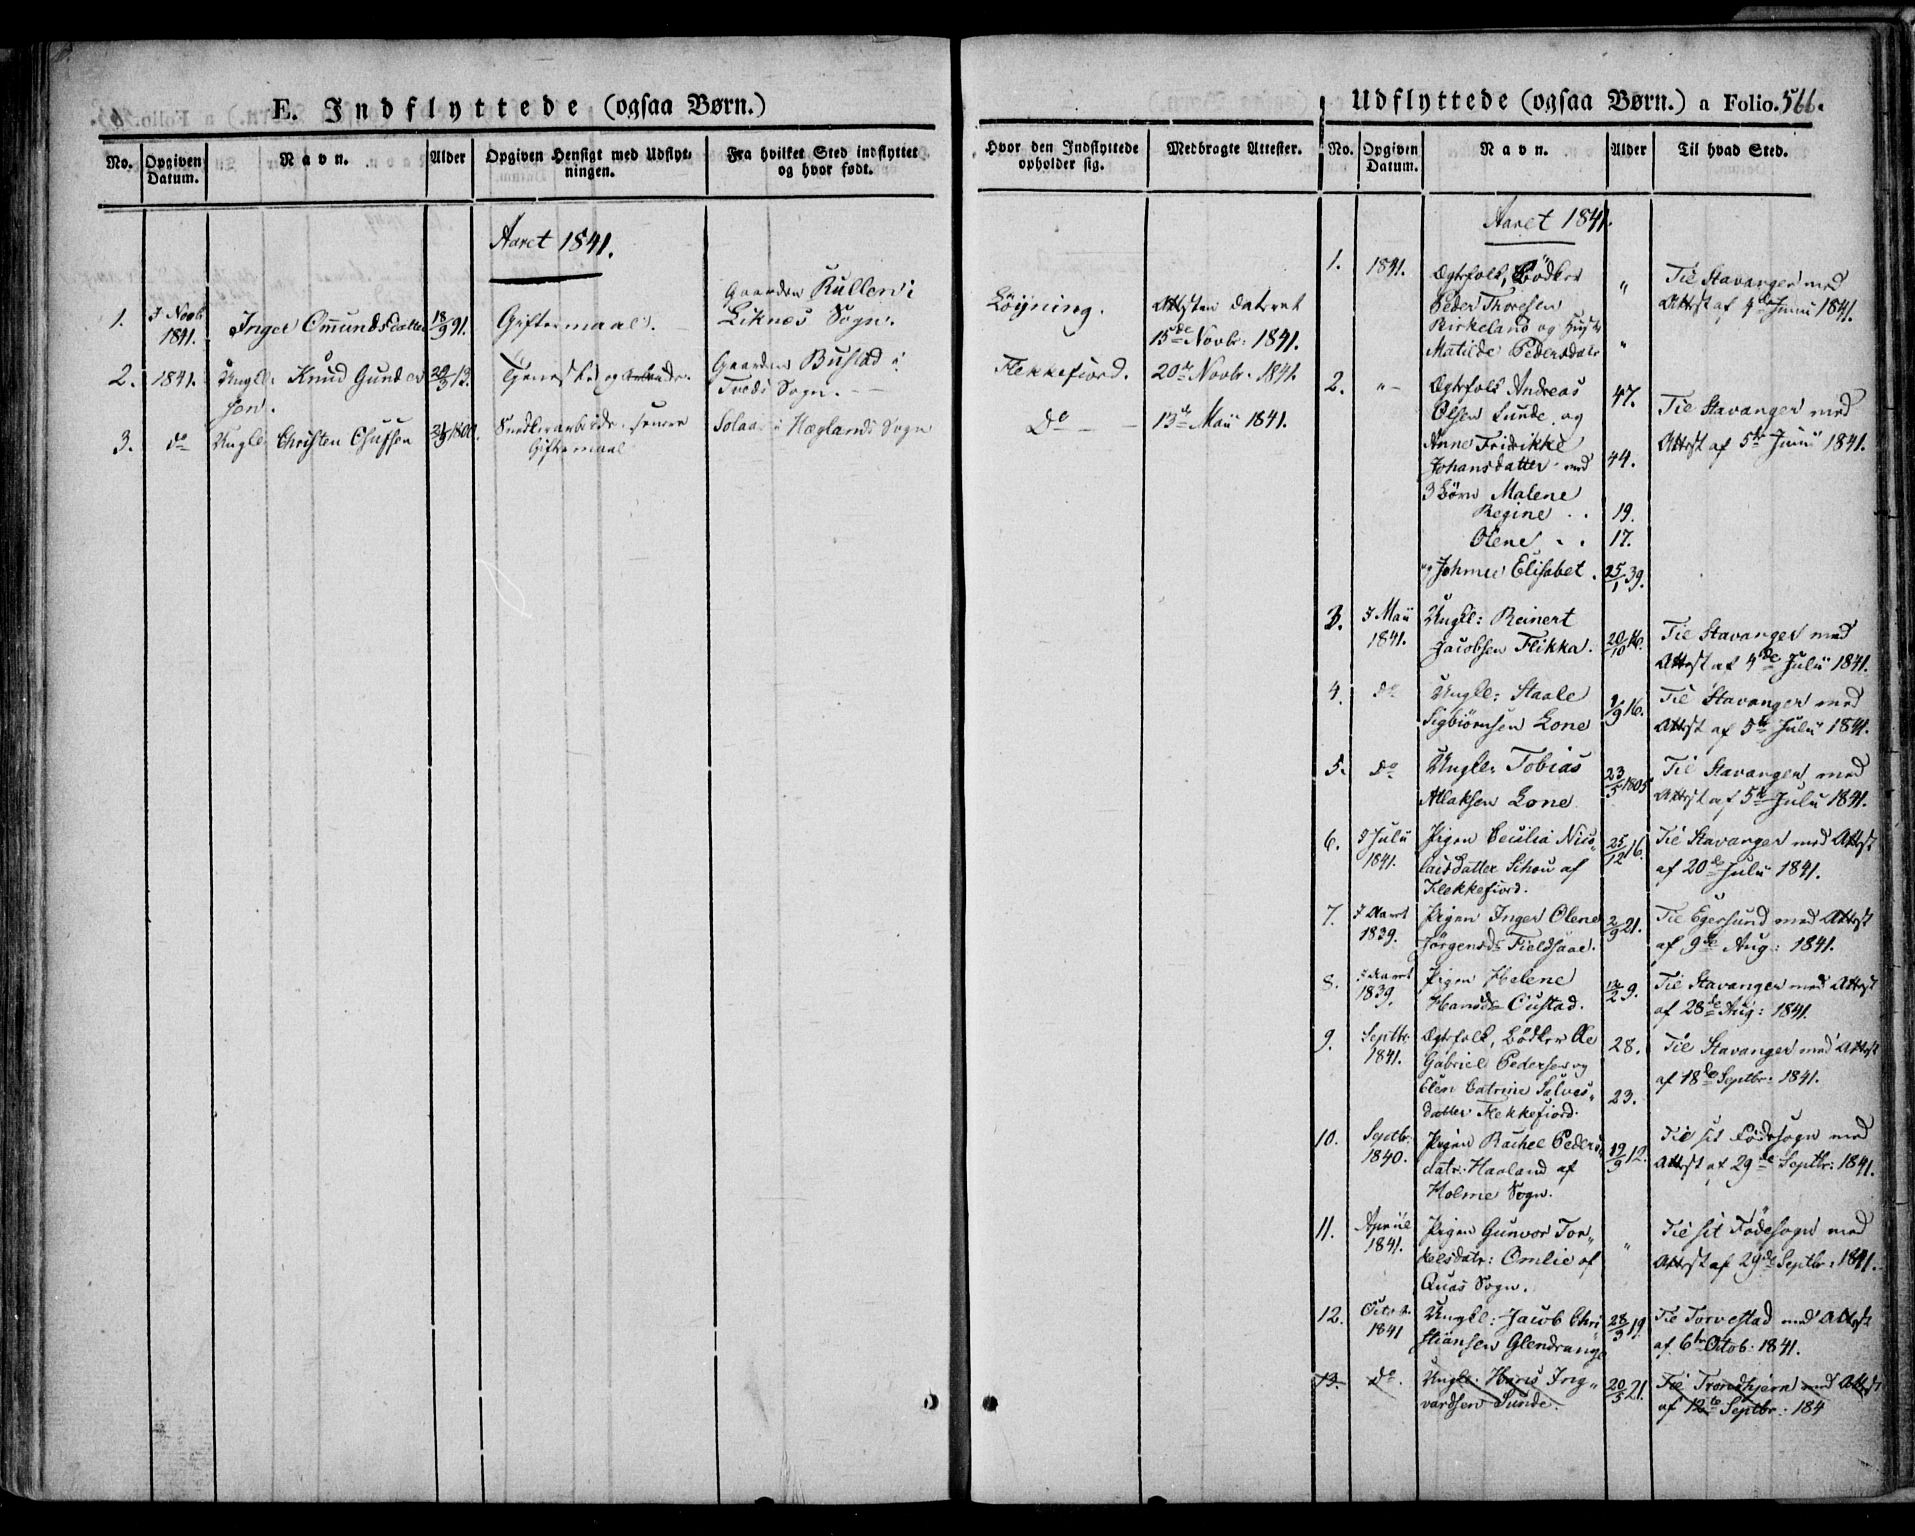 E. Indflyttede (ogsaa Børn.)
No.
Opgiven Datum.
Navn.
Alder
Opgiven Hensigt med Udflyt-
ningen.
Fra hvilket Sted indflyttet
og hvor født.
Hvor den Indflyttede
opholder sig.
Medbragte Attester.
Aaret 1841.
1. I Novb. 1841. Inger Omundsdatter 18/9 91. Giftermaal. Gaarden Kullen i
Liknes Sogn. Løyning. Attesten dateret
15de Novbr: 1841.
2. 1841. Ungk: Knud Gunder
sen. 13. Tjeneste og Gaarden Bustad i
Tveds Sogn. Flekkefiord. 20de Novbr. 1841.
3. do Ungk: Christen 1800. Snedkerarbeide, senere
Giftermaal Solaas i Hæglands Sogn Do 13de Maii 1841.
Udflyttede (ogsaa Børn.) a Folio. 566.
No.
Opgiven Datum.
Navn.
Alder
Til hvad Sted.
Aaret 1841.
1. 1841. Ægtefolk, Bødker " Til Stavanger med
Peder Thorsen Attest af 4de Junii 1841.
Birkeland og Hustr.
Matilde Pedersdatr "
2. " Ægtefolk Andreas 47. Til Stavanger med
Olsen Lunde og Attest af 5te Junii 1841.
Anne Fridrikke
Johansdatter med 44.
3 Børn Malene
Regine . . 19.
Olene . . 17.
og Johnne Elisabet. 25/1 39.
3. I Maii 1841. Ungk: Reinert
Jacobsen Flikka. 20/10 16. Til Stavanger med
Attest af 4de Julii 1841.
4. do Ungk: Staale
Sigbiørnsen Lone /9 16. Til Stavanger med
Attest af 5te Julii 1841.
5. do Ungk: Tobias
Atlaksen Lone 23/5 1805 Til Stavanger med
Attest af 5te Julii 1841.
6. I Julii 1841. Pigen Cecilia Nico-
laisdatter Schou af
Flekkefiord. 25/12 16. Til Stavanger med Attest
af 20de Julii 1841.
7. I Aaret 1839. Pigen Inger Olene
Jørgensds Fieldsaae. 2/9 21. Til Egersund med Attest
af 9de Aug: 1841.
8. I Aaret 1839. Pigen Helene
Hansdr Oustad. 12/2 9. Til Stavanger med Attest
af 28de Aug: 1841.
9. Septbr. 1841. Ægtefolk, Bødker Ole 28.
Gabriel Pedersen og
Elen Catrine Salves- 23.
datter Flekkefiord. Til Stavanger med Attest
af 18de Septbr: 1841.
10. Septbr. 1840. Pigen Rachel Peders-
datr: Haaland af
Holme Sogn. 19/9 12. Til sit Fødesogn med
Attest af 29de Septbr: 1841.
11. Apriil 1841. Pigen Gunvor Tor-
kelsdatr: Omlie af
Quas Sogn. " Til sit Fødesogn med
Attest af 29de Septbr: 1841.
12. Octob. 1841 Ungk: Jacob Chri
stiansen Glendrange 28/3 19. Til Torvestad med Attest
af 6te Octob. 1841.
13. do. Ungk: Hans Ing-
vardsen Lunde. 20/5 21. Til Trondhjem med Attest
af 12te Septbr: 184